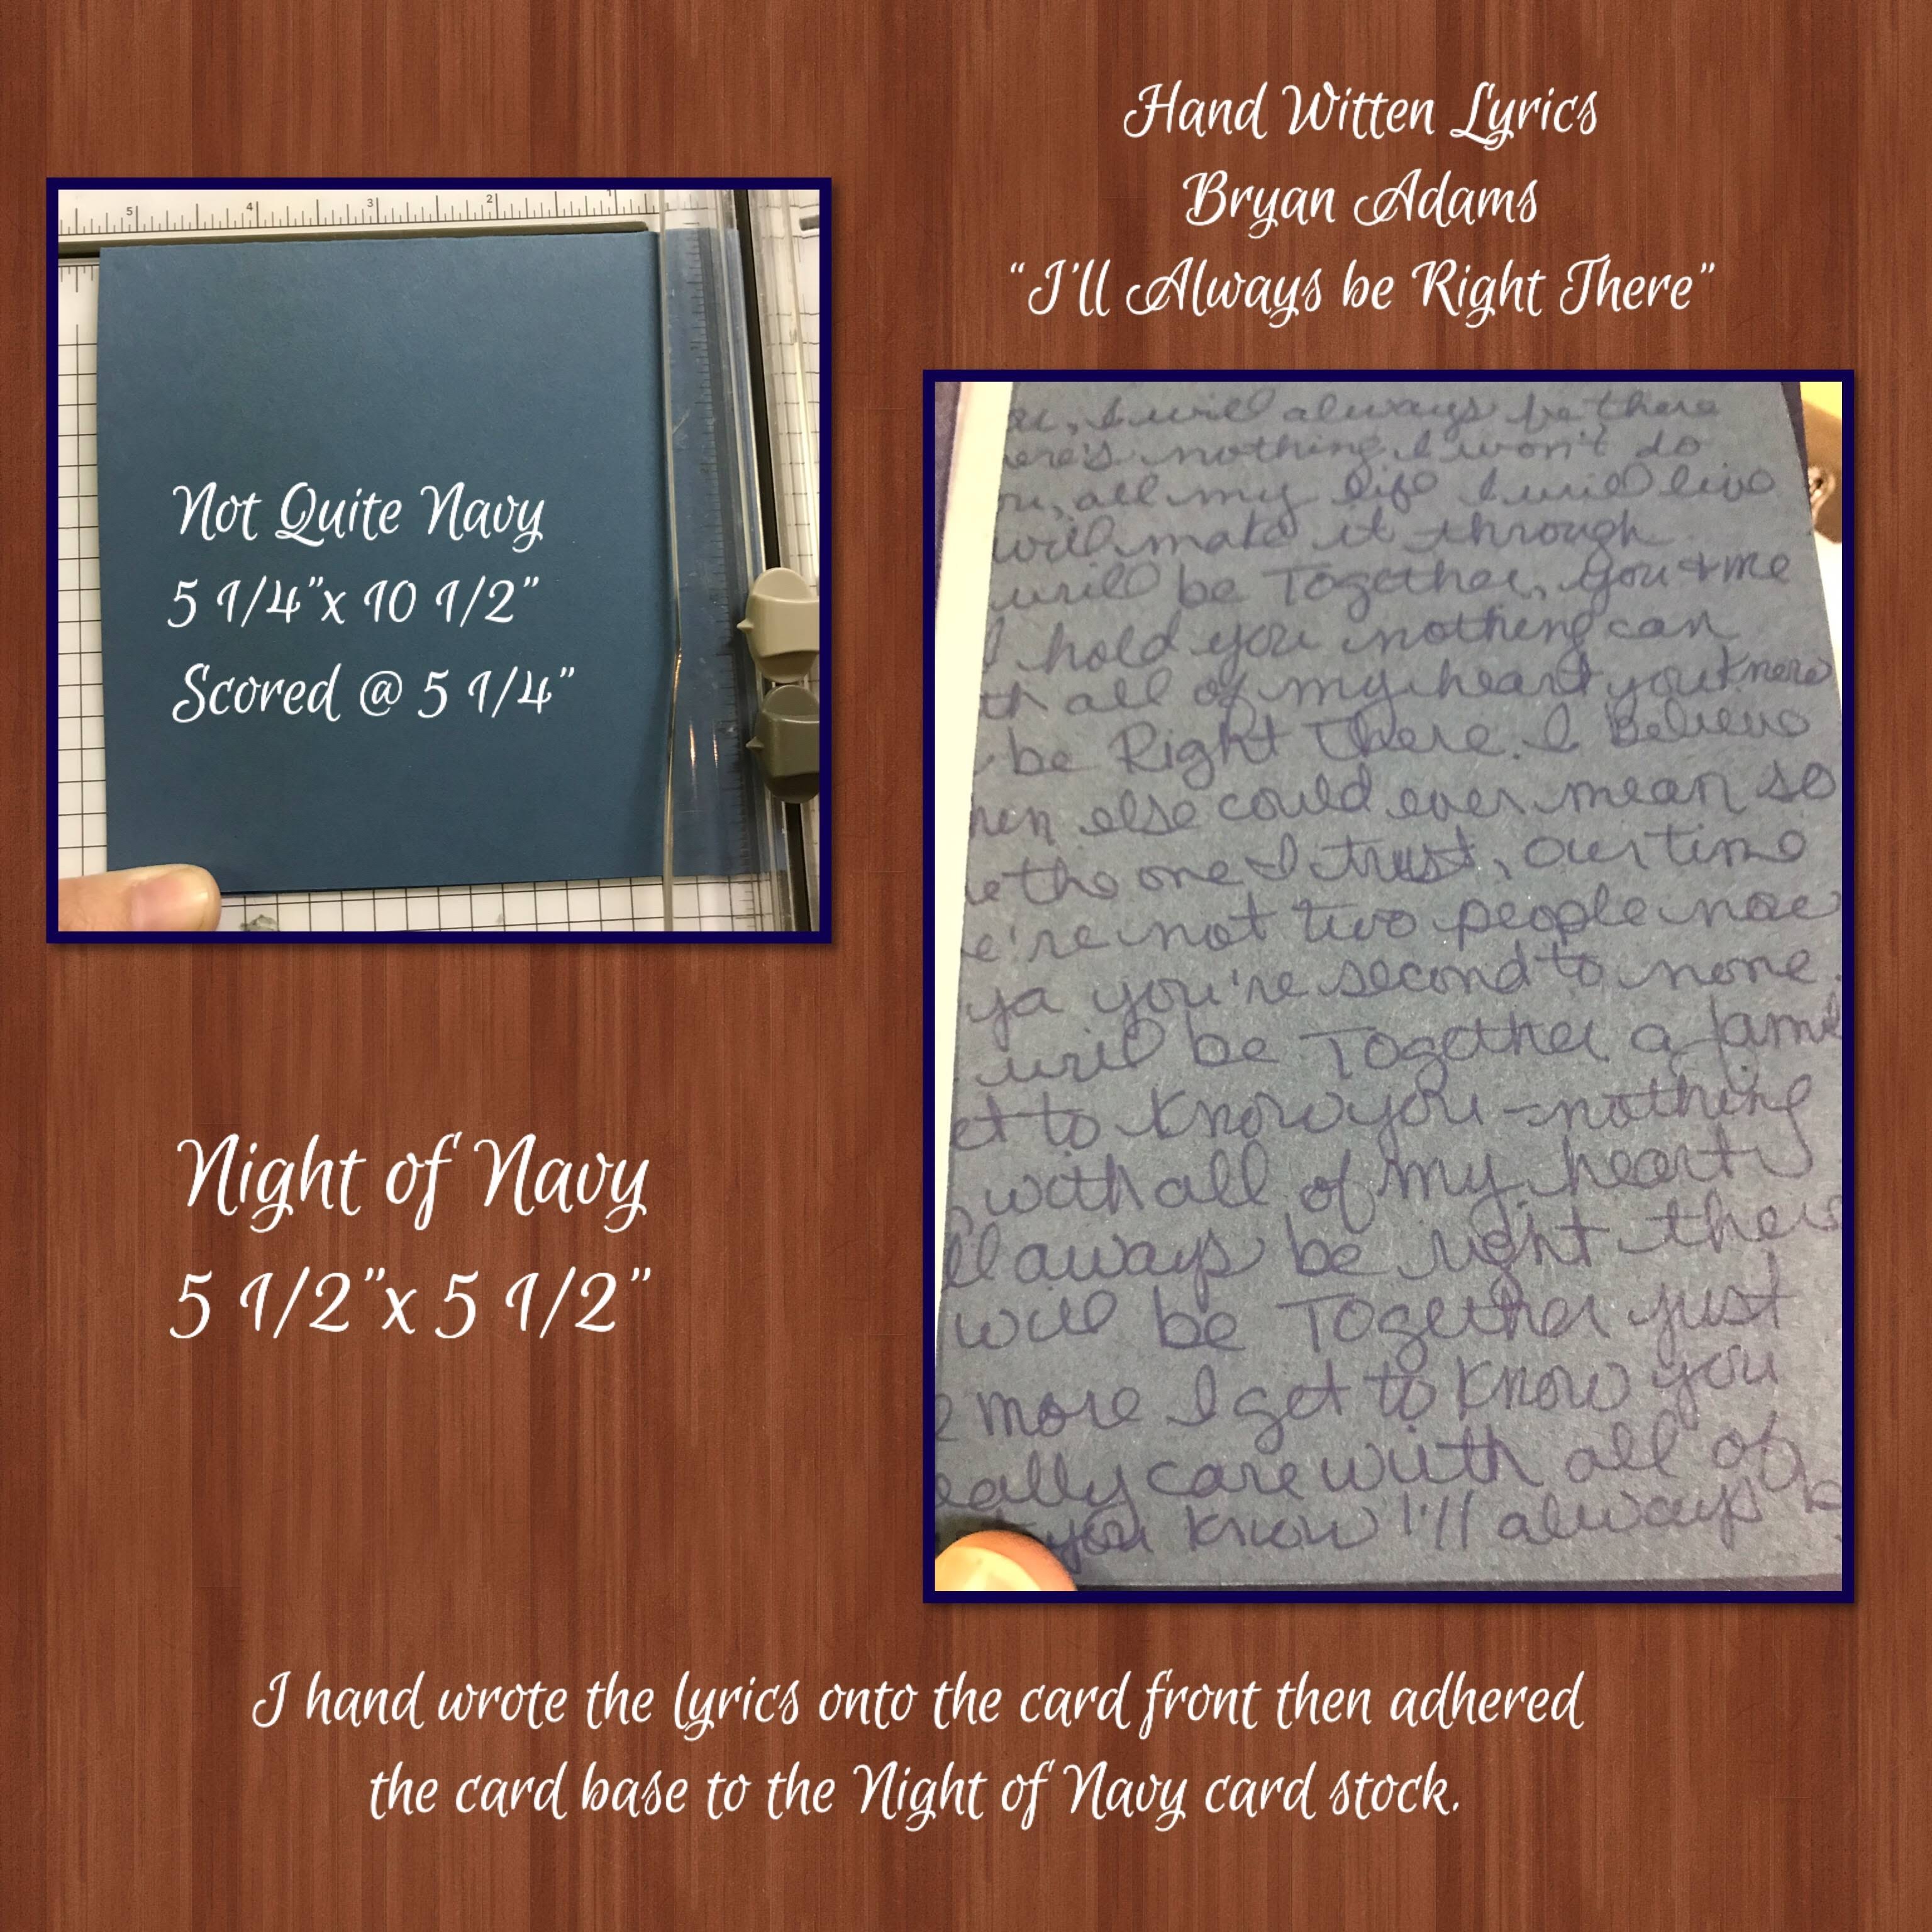 Hand Witten Lyrics
Bryan Adams
“I'll Always be Right There”
5 4 3 2 1
Not Quite Navy
5 1/4"x 10 1/2"
Scored @ 5 1/4"
Night of Navy
5 1/2"x 5 1/2"
I will always be there
ere's nothing I won't do
all my life I will live
will make it through
will be Together, you + me
I hold you nothing can
th all of my heart you
be Right There. I Believe
else could ever mean so
the one I trust, our time
e're not two people now
ya you're second to none.
will be Together a fami
et to know you - nothing
with all of my heart
ll aways be right there
will be Together just
e more I get to know you
eally care with all of
you know I'll always b
I hand wrote the lyrics onto the card front then adhered
the card base to the Night of Navy card stock.